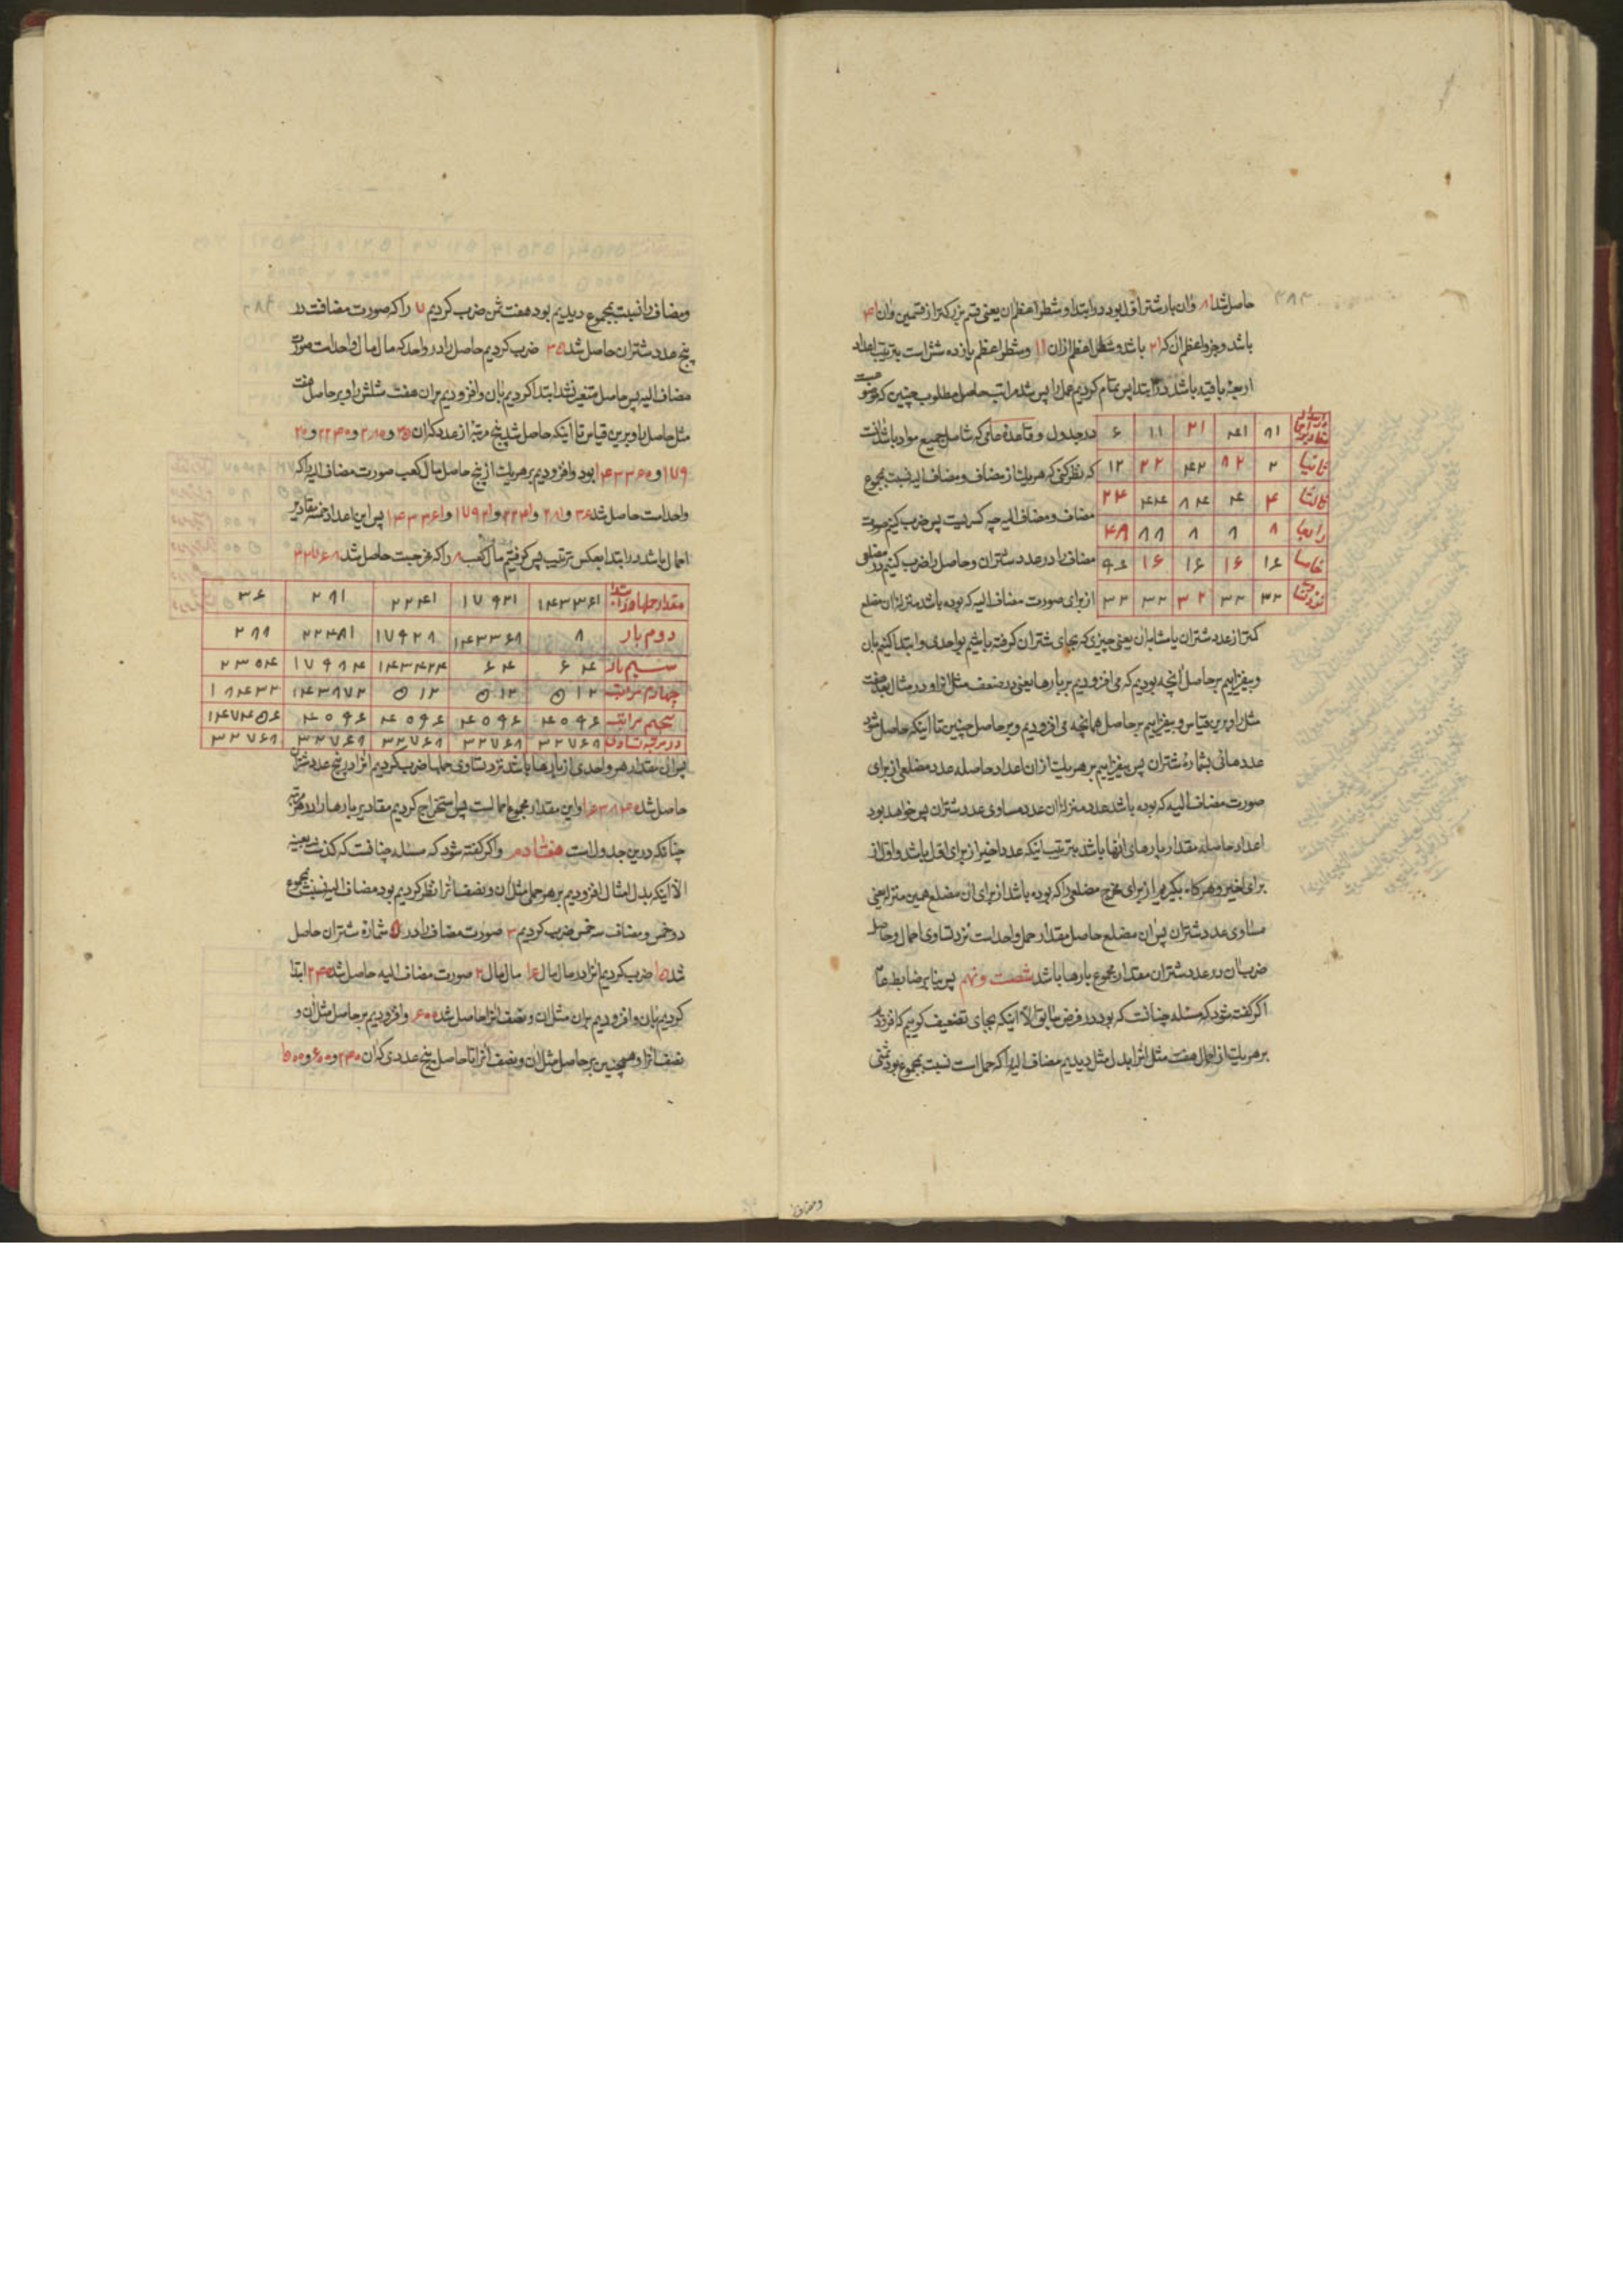 حاصل شد ۸۱ وان بار شتر اول بود در ابتدا و شطر اعظم ان یعنی قسم بزرکتر از قسمین وان ۴۱
باشد و جزو اعظم ان که ۲۱ باشد و شطر اعظم از ان ۱۱ و شطر اعظم یازده شش است بترتیب اعداد
اربعهٔ باقیه باشد در ابتدا پس تمام کردیم عمل را پس شد مراتب حاصل مطلوب چنین که
۸۱ ۴۱ ۲۱ ۱۱ ۶ در جدول و قاعدهٔ عامی که شامل جمیع مواد باشد انست
ثانیا ۲ ۸۲ ۴۲ ۲۲ ۱۲ که نظر کنی که هریک از مضاف و مضاف الیه نسبت بمجموع
ثالثا ۴ ۴ ۸۴ ۴۴ ۲۴ مضاف و مضاف الیه چه کسریست پس ضرب کنیم صورت
رابعا ۸ ۸ ۸ ۸۸ ۴۸ مضاف را در عدد شتران و حاصل را ضرب کنیم در مضلعی
خامسا ۱۶ ۱۶ ۱۶ ۱۶ ۹۶ از برای صورت مضاف الیه که بوده باشد منزل ان مضلع
۳۲ ۳۲ ۳۲ ۳۲ ۳۲
کمتر از عدد شتران یا مشابه ان یعنی چیزی که بجای شتران کرفته باشیم بواحدی و ابتدا کنیم بان
و بیفزاییم بر حاصل انچه بودیم که می افزودیم بر بارها یعنی در ضعف مثل انرا و در مثال بعد هفت
مثل را و برین قیاس و بیفزاییم بر حاصل همانچه می افزودیم و بر حاصل چنین تا اینکه حاصل شود
عددهائی بشمارهٔ شتران پس بیفزاییم بر هریک از ان اعداد حاصله عدد مضلعی از برای
صورت مضاف الیه که بوده باشد عدد منزل ان عدد مساوی عدد شتران پس خواهد بود
اعداد حاصله مقدار بارهای انها باشد بترتیب اینکه عدد اخیر از برای اول باشد و اول از
برای اخیر و هرکاه بکیریم از برای مخرج مضلعی را که بوده باشد از برای ان مضلع همین منزل یعنی
مساوی عدد شتران پس ان مضلع حاصل مقدار حمل واحد است نزد تساوی احمال و حاصل
ضرب ان در عدد شتران مقدار مجموع بارها باشد شصت و نهم پس بنا بر ضابطه عام
اگر گفته شود که مسئله چنانست که بود در فرض سابق الا اینکه بجای تضعیف کوییم که افزود
بر هریک از احمال هفت مثل انرا بدل مثل دیدیم مضاف الیه را که حمل است نسبت بمجموع بود ثمنی
ومضاف را
ومضاف را نسبت بمجموع دیدیم بود هفت ثمن ضرب کردیم ۷ را که صورت مضافست در
پنج عدد شتران حاصل شد ۳۵ ضرب کردیم حاصل را در واحد که مال مال واحد است صورت
مضاف الیه پس حاصل متغیر نشد ابتدا کردیم بان و افزودیم بران هفت مثلش را و بر حاصل هفت
مثل حاصل را و برین قیاس تا اینکه حاصل شد پنج مرتبه از عدد که ان ۳۵ و ۲۸۰ و ۲۲۴۰ و ۲۰
۱۷۹ و ۱۴۳۳۶۰ بود و افزودیم بر هریک از پنج حاصل مال کعب صورت مضاف الیه را که
واحد است حاصل شد ۳۶ و ۲۸۱ و ۲۲۴۱ و ۱۷۹۲۱ و ۱۴۳۳۶۱ پس این اعداد خمسه مقادیر
احمال باشد در ابتدا بعکس ترتیب پس کرفتیم مال کعب ۸ را که مخرجست حاصل شد ۳۲۷۶۸
مقدار حملها در ابتدا ۱۴۳۳۶۱ ۱۷۹۲۱ ۲۲۴۱ ۲۸۱ ۳۶
دوم بار ۸ ۱۴۳۳۶۸ ۱۷۹۲۸ ۲۲۴۸ ۲۸۸
سیم بار ۶۴ ۶۴ ۱۴۳۴۲۴ ۱۷۹۸۴ ۲۳۰۴
چهارم مراتب ۵۱۲ ۵۱۲ ۵۱۲ ۱۴۳۸۷۲ ۱۸۴۳۲
پنجم مراتب ۴۰۹۶ ۴۰۹۶ ۴۰۹۶ ۴۰۹۶ ۱۴۷۴۵۶
در مرتبه تساوی ۳۲۷۶۸ ۳۲۷۶۸ ۳۲۷۶۸ ۳۲۷۶۸ ۳۲۷۶۸
پس ان مقدار هر واحدی از بارها باشد نزد تساوی حملها ضرب کردیم انرا در پنج عدد شتران
حاصل شد ۱۶۳۸۴۰ و این مقدار مجموع احمالست پس استخراج کردیم مقادیر بارها را در هر مرتبه
چنانکه درین جدول است هفتادم و اکر کفته شود که مسئله چنانست که کذشت بعینه
الا اینکه بدل امثال افزودیم بر هر حملی مثل ان و نصف انرا نظر کردیم بود مضاف الیه نسبت بمجموع
دو خمس و مضاف سه خمس ضرب کردیم ۳ صورت مضاف را در ۵ شمارهٔ شتران حاصل
شد ۱۵ ضرب کردیم انرا در مال مال ۱۶ مال مال ۲ صورت مضاف الیه حاصل شد ۲۴۰ ابتدا
کردیم بان و افزودیم بران مثل ان و نصف انرا حاصل شد ۶۰۰ و افزودیم بر حاصل مثل ان و
نصف انرا و همچنین بر حاصل مثل ان و نصف انرا تا حاصل پنج عددی که ان ۲۴۰ و ۶۰۰ و ۱۵۰۰